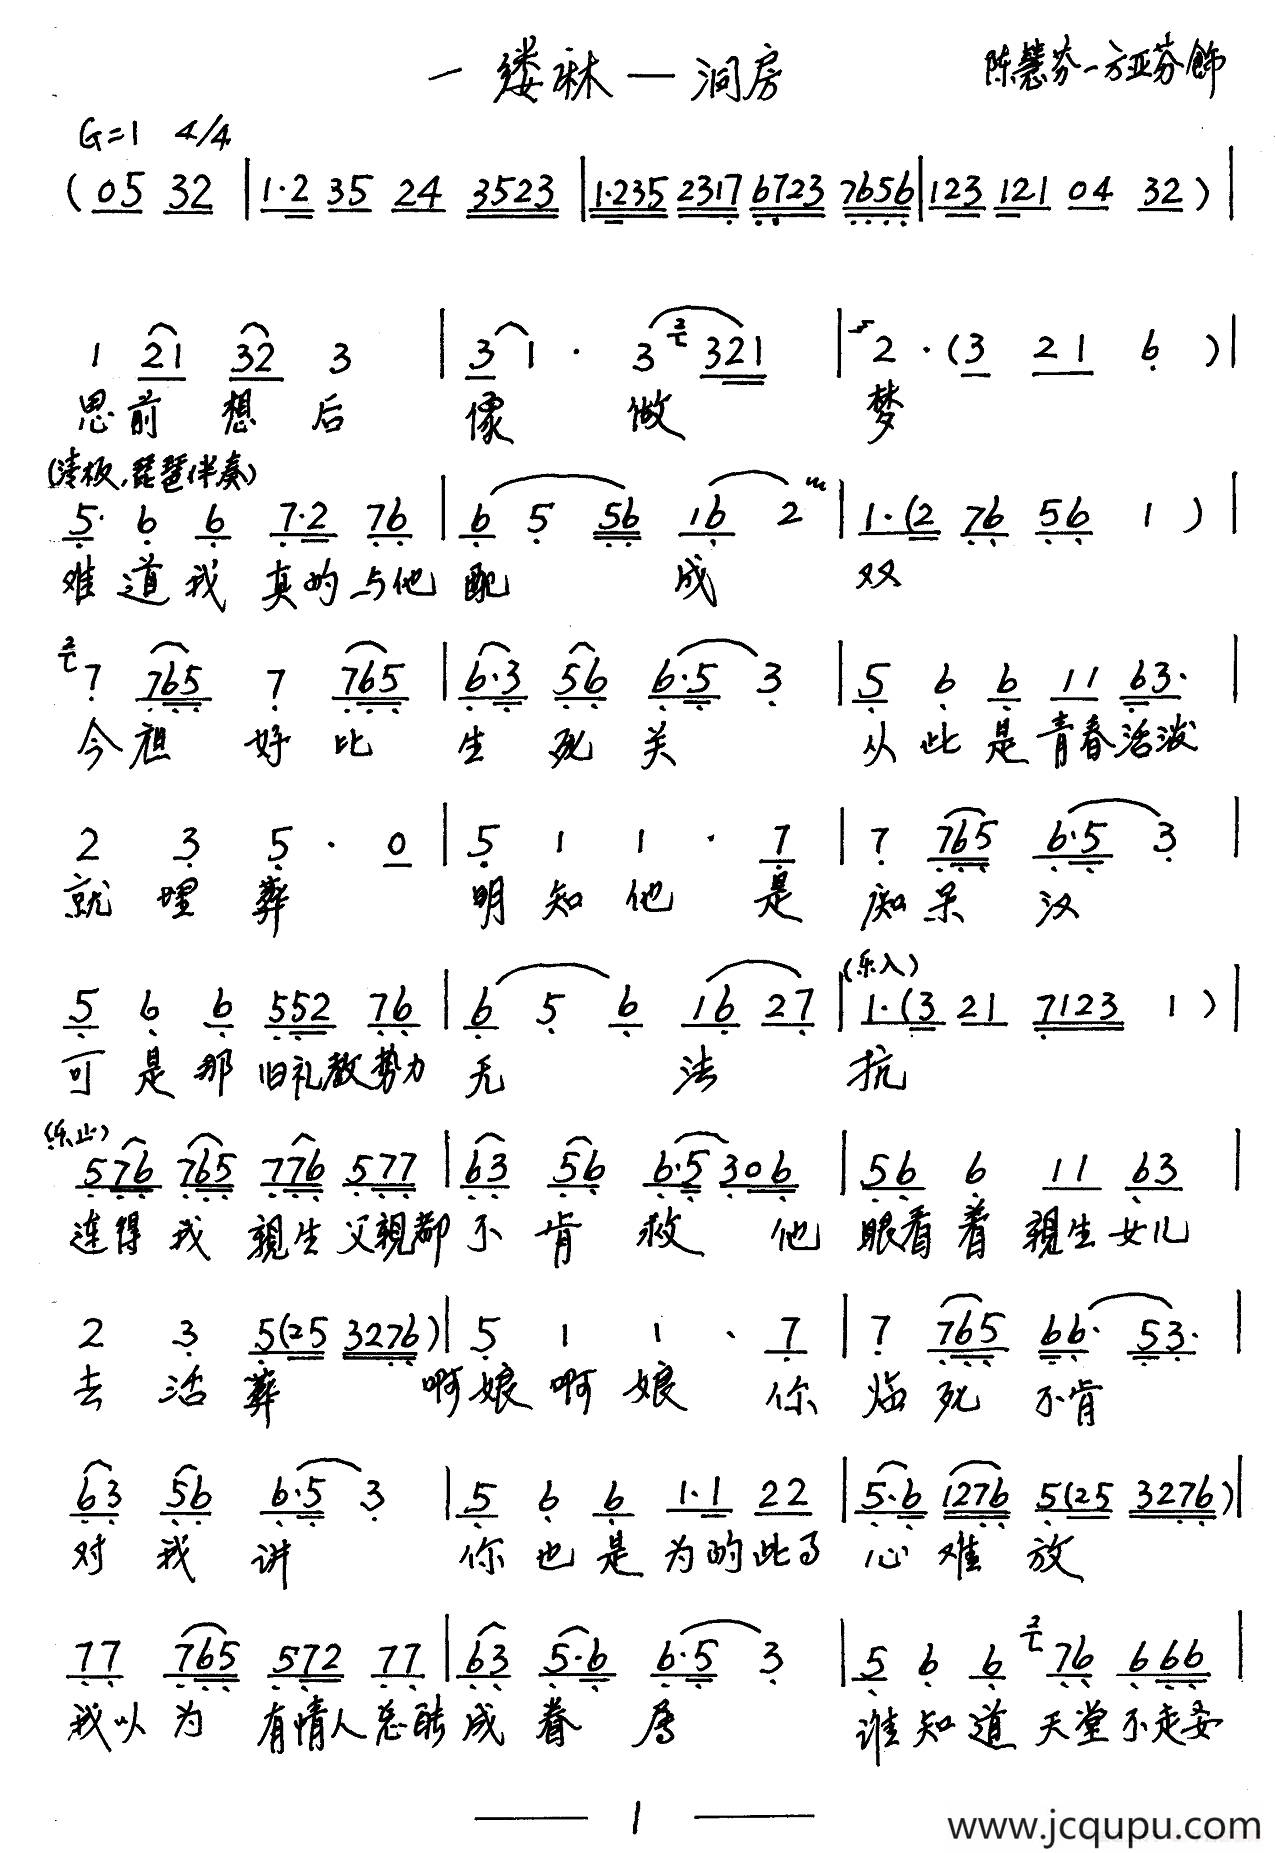 一缕麻—洞房
陈慧芬—方亚芬饰
G=1 4/4
(05 32 | 1·2 35 24 3523 | 1·235 2317 6723 7656 | 123 121 04 32) |
1 21 32 3 | 3 1 · 3 321 | 2 · (3 21 6) |
思前 想 后 像 做 梦
(清板,琵琶伴奏)
5· 6 6 7·2 76 | 6 5 56 16 2 | 1·(2 76 56 1) |
难道我 真的与他 配 成 双
7 765 7 765 | 6·3 56 6·5 3 | 5 6 6 11 63· |
今 好 比 生 死 关 从 此 是 青春活泼
2 3 5 · 0 | 5 1 1 · 7 | 7 765 6·5 3 |
就 埋 葬 明 知 他 是 痴 呆 汉
(乐入)
5 6 6 552 76 | 6 5 6 16 27 | 1·(3 21 7123 1) |
可 是 那 旧礼教势力 无 法 抗
(乐止)
576 765 776 577 | 63 56 6·5 306 | 56 6 11 63 |
连得 我 親生 父親都 不 肯 救 他 眼看 着 親生 女儿
2 3 5(25 3276) | 5 1 1 · 7 | 7 765 66· 53· |
去 活 葬 啊娘啊 娘 你 临 死 不肯
63 56 6·5 3 | 5 6 6 1·1 22 | 5·6 1276 5(25 3276) |
对 我 讲 你 也 是 为的此马 心 难 放
77 765 572 77 | 63 5·6 6·5 3 | 5 6 6 76 666 |
我以 为 有情人总能 成 眷 属 谁 知 道 天堂不走要
— 1 —
www.jcqupu.com